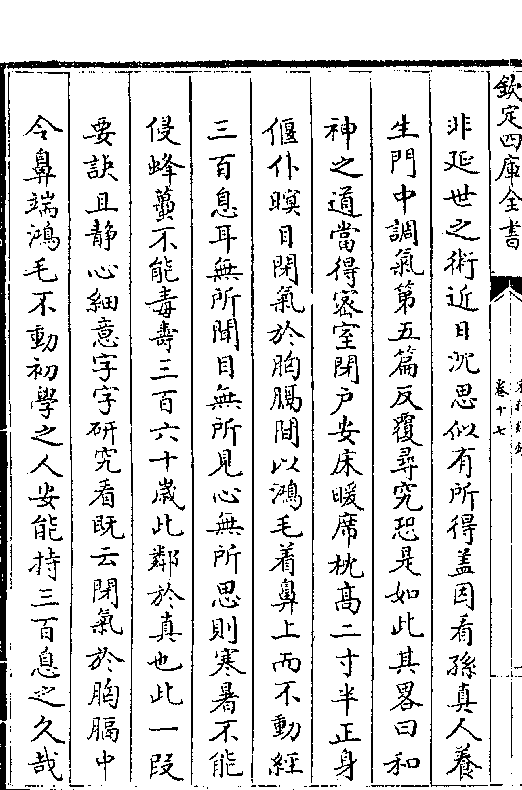 欽定四庫全書
卷十七
非延世之術近日沈思似有所得蓋因看孫真人養
生門中調氣第五篇反覆尋究恐是如此其畧曰和
神之道當得宻室閉户安床暖席枕髙二寸半正身
偃仆暝目閉氣於胸膈間以鴻毛着鼻上而不動經
三百息耳無所聞目無所見心無所思則寒暑不能
侵蜂蠆不能毒壽三百六十歳此鄰於真也此一段
要訣且静心細意字字研究看既云閉氣於胸膈中
令鼻端鴻毛不動初學之人安能持三百息之久哉